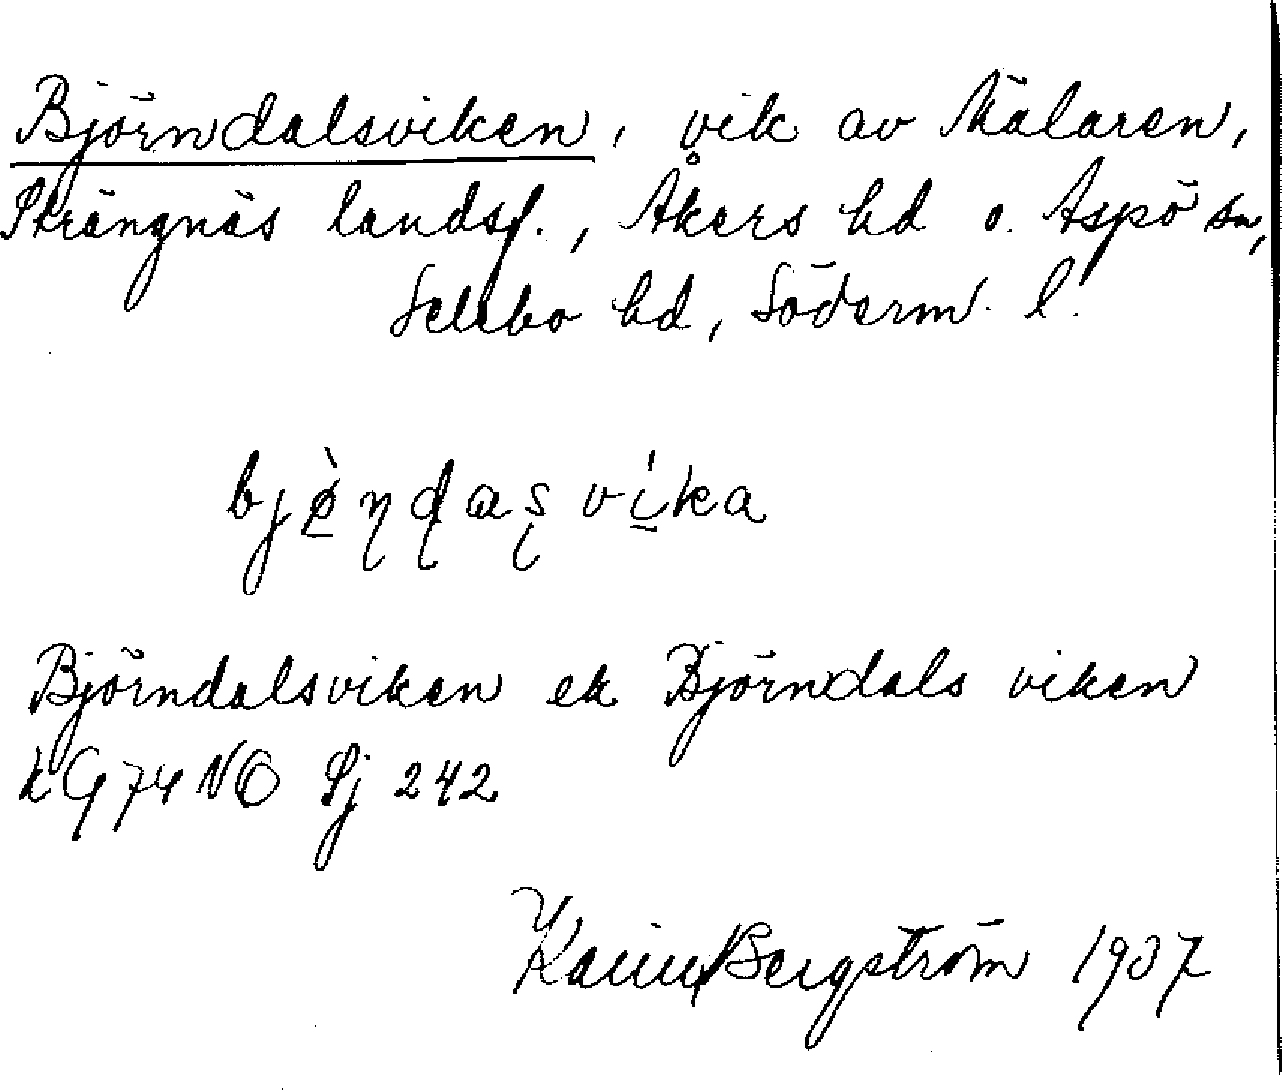 Björndalsviken, vik av Mälaren,
Strängnäs landsf., Åkers hd o. Aspö sn,
Selebo hd, Söderm. l.
bjø̀ṇḍaṣvíka
Björndalsviken ek Björndals viken
kG 74 NO Sj 242
Karin Bergström 1937